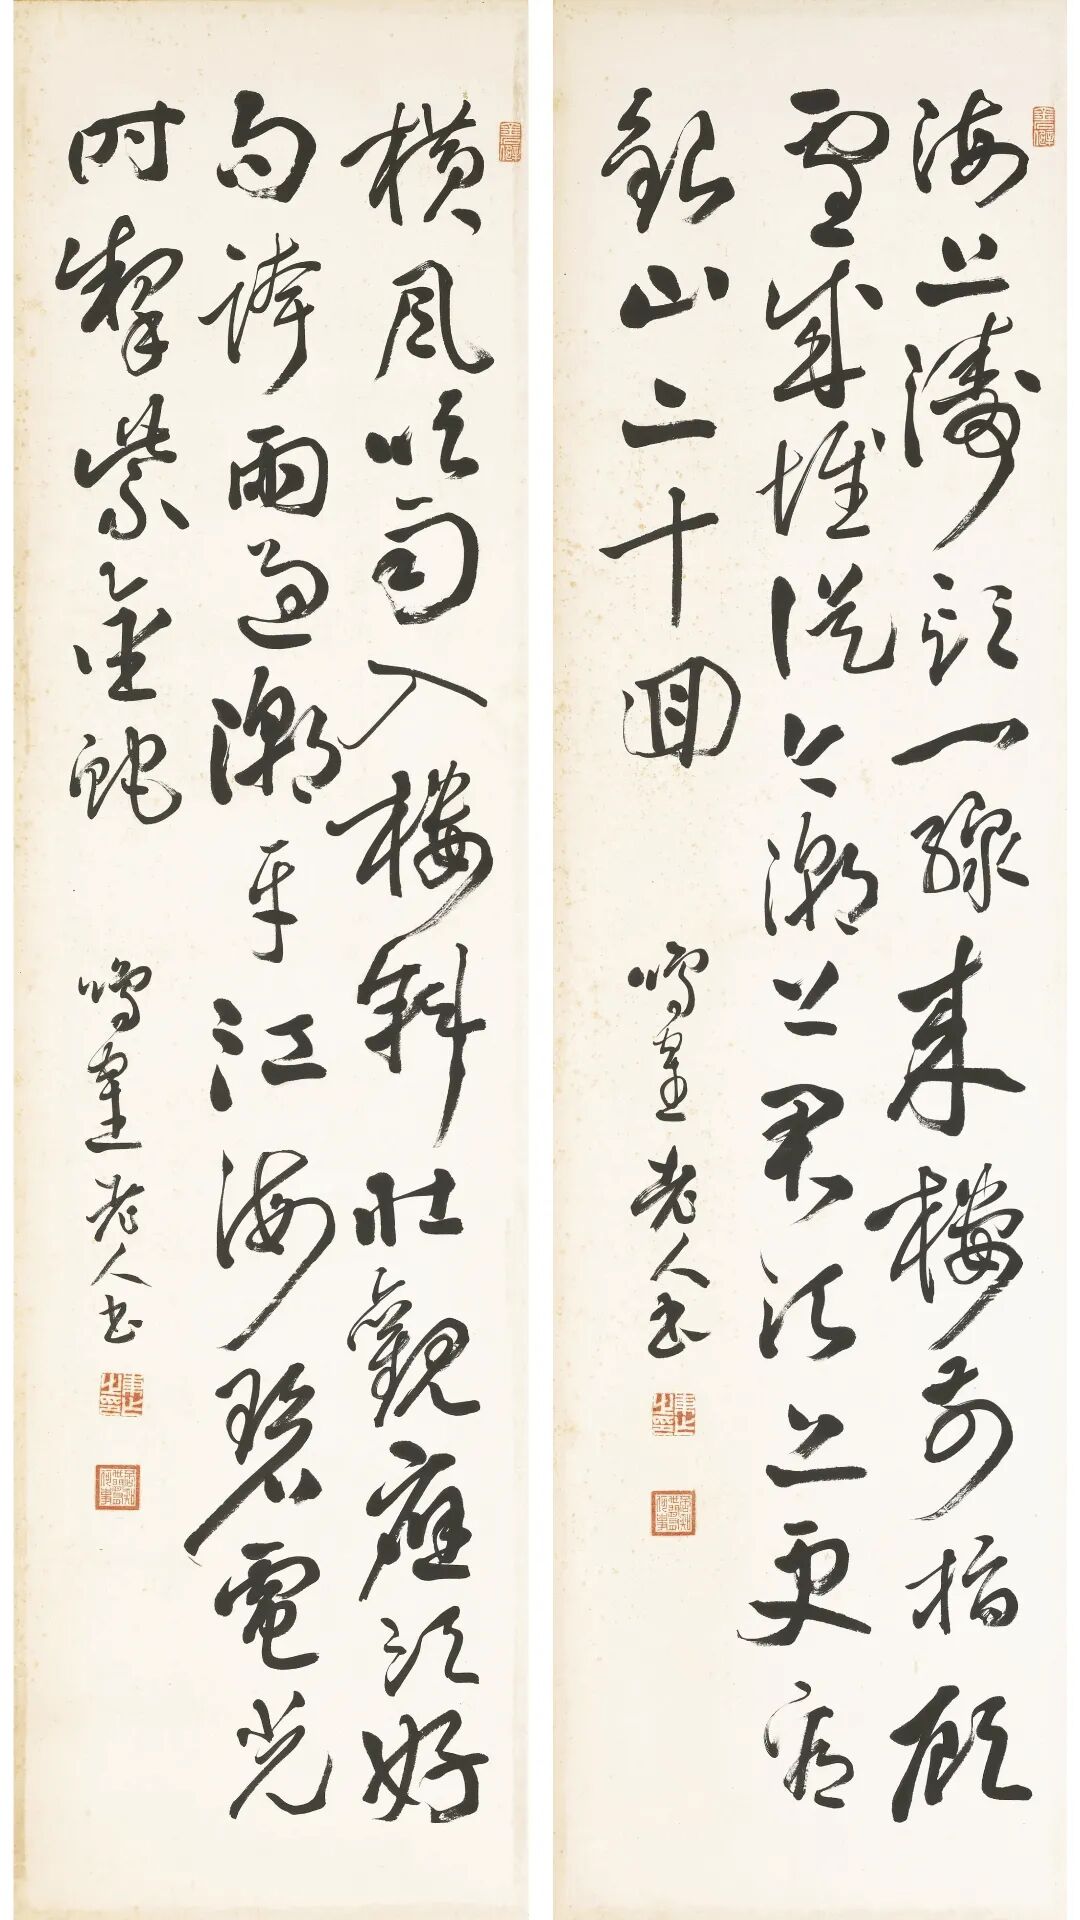 海上濤頭一線來樓前指顧
雪成堆從今潮上君須上更看
銀山二十回
鳴鶴老人書
橫風吹雨入樓斜壯觀應須好
句誇雨過潮平江海碧電光
時掣紫金蛇
鳴鶴老人書